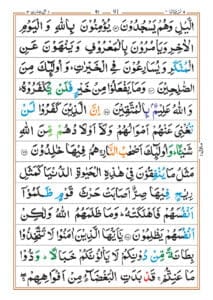 الَّيْلِ وَهُمْ يَسْجُدُوْنَ يُؤْمِنُوْنَ بِاللّٰهِ وَ الْيَوْمِ
الْاٰخِرِ وَيَاْمُرُوْنَ بِالْمَعْرُوْفِ وَيَنْهَوْنَ عَنِ
الْمُنْكَرِ وَيُسَارِعُوْنَ فِی الْخَيْرٰتِ وَاُولٰٓئِكَ مِنَ
الصّٰلِحِيْنَ وَمَا يَفْعَلُوْا مِنْ خَيْرٍ فَلَنْ يُّكْفَرُوْهُ
وَاللّٰهُ عَلِيْمٌۢ بِالْمُتَّقِيْنَ اِنَّ الَّذِيْنَ كَفَرُوْا لَنْ
تُغْنِیَ عَنْهُمْ اَمْوَالُهُمْ وَلَاۤ اَوْلَادُهُمْ مِّنَ اللّٰهِ
شَيْـًٔا وَاُولٰٓئِكَ اَصْحٰبُ النَّارِ هُمْ فِيْهَا خٰلِدُوْنَ
مَثَلُ مَا يُنْفِقُوْنَ فِیْ هٰذِهِ الْحَيٰوةِ الدُّنْيَا كَمَثَلِ
رِيْحٍ فِيْهَا صِرٌّ اَصَابَتْ حَرْثَ قَوْمٍ ظَلَمُوْۤا
اَنْفُسَهُمْ فَاَهْلَكَتْهُ وَمَا ظَلَمَهُمُ اللّٰهُ وَلٰكِنْ
اَنْفُسَهُمْ يَظْلِمُوْنَ يٰۤاَيُّهَا الَّذِيْنَ اٰمَنُوْا لَا تَتَّخِذُوْا
بِطَانَةً مِّنْ دُوْنِكُمْ لَا يَاْلُوْنَكُمْ خَبَالًا وَدُّوْا
مَا عَنِتُّمْ قَدْ بَدَتِ الْبَغْضَآءُ مِنْ اَفْوَاهِهِمْ